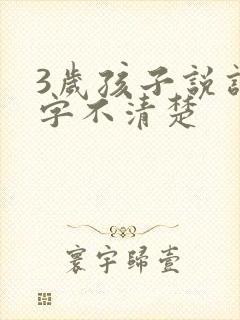 3歲孩子說話
字不清楚
寰宇歸壹